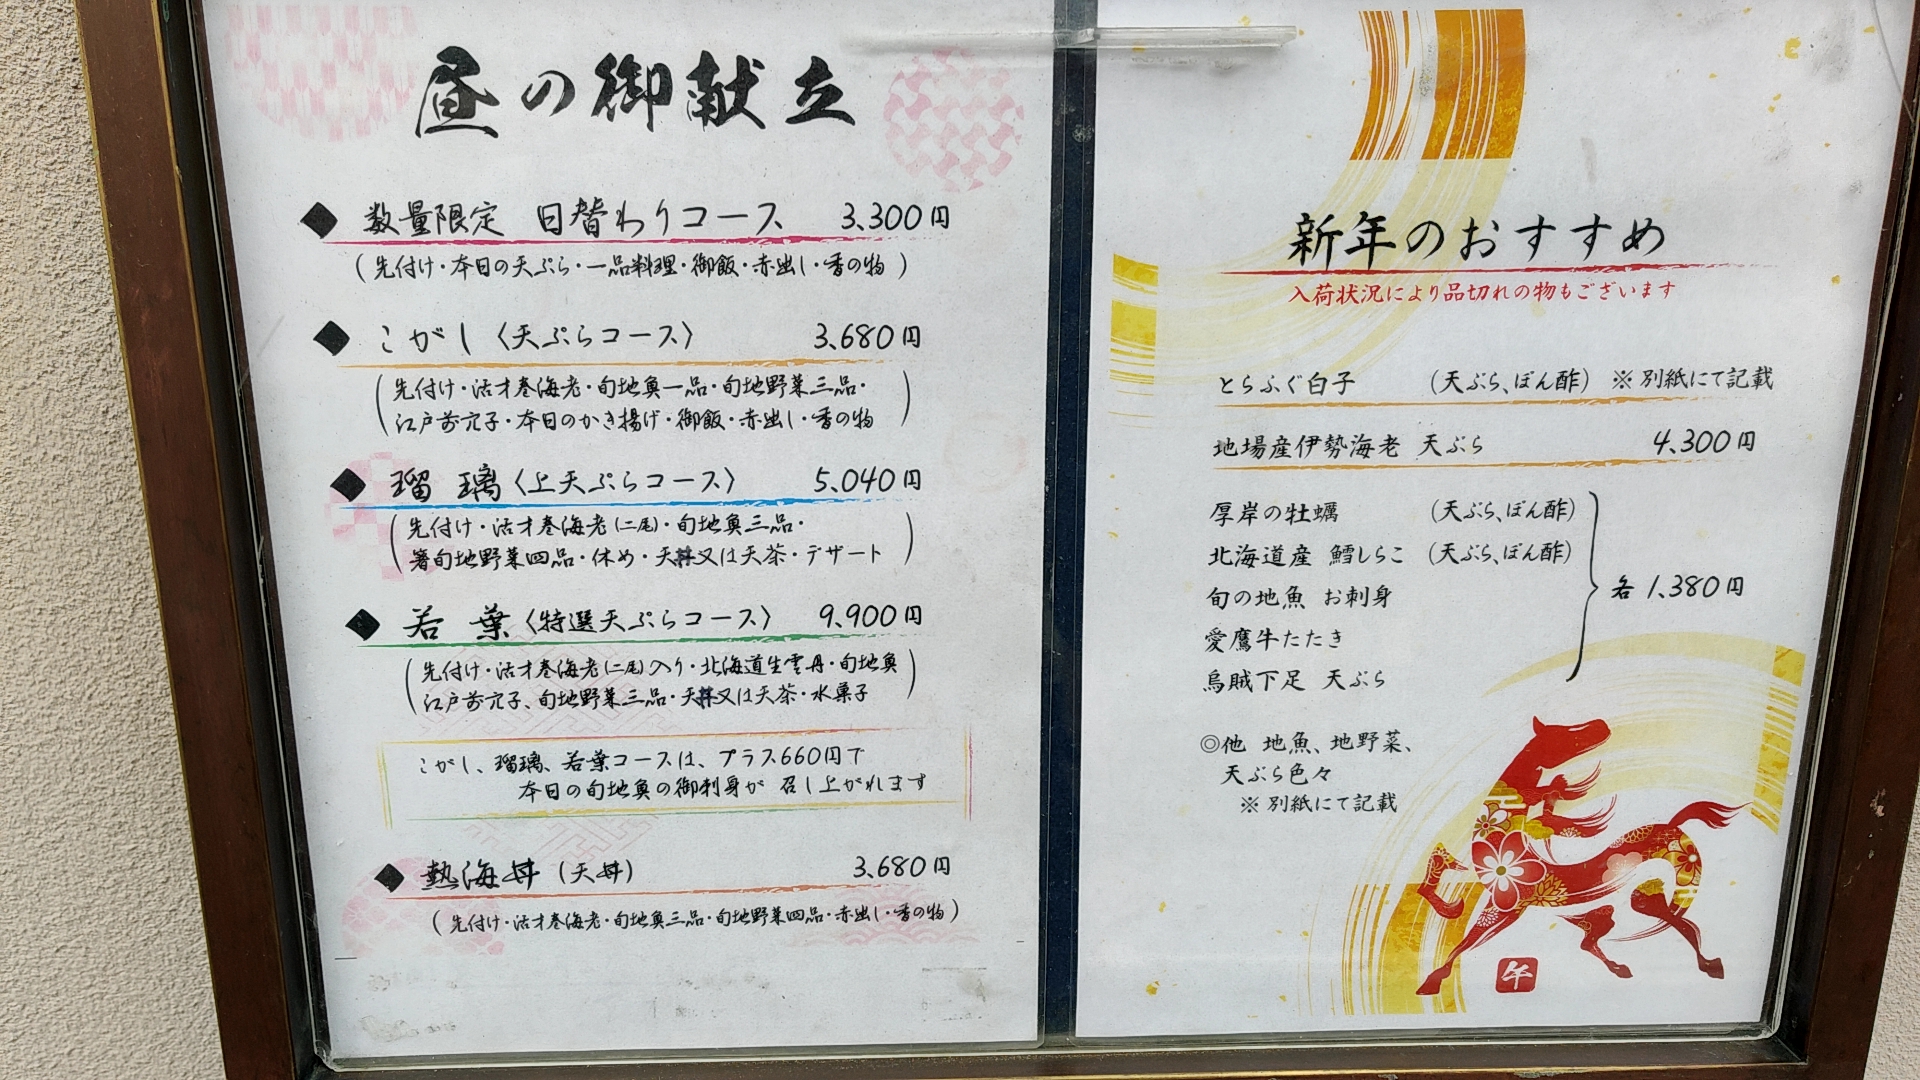 昼の御献立
◆ 数量限定 日替わりコース 3,300円
(先付け・本日の天ぷら・一品料理・御飯・赤出し・香の物)
◆ こがし〈天ぷらコース〉 3,680円
(先付け・活才巻海老・旬地魚一品・旬地野菜三品・
江戸前穴子・本日のかき揚げ・御飯・赤出し・香の物)
◆ 瑠璃〈上天ぷらコース〉 5,040円
(先付け・活才巻海老(二尾)・旬地魚三品・
箸旬地野菜四品・休め・天丼又は天茶・デザート)
◆ 若葉〈特選天ぷらコース〉 9,900円
(先付け・活才巻海老(二尾)入り・北海道生雲丹・旬地魚
江戸前穴子、旬地野菜三品・天丼又は天茶・水菓子)
こがし、瑠璃、若葉コースは、プラス660円で
本日の旬地魚の御刺身が 召し上がれます
◆ 熱海丼(天丼) 3,680円
(先付け・活才巻海老・旬地魚三品・旬地野菜四品・赤出し・香の物)
新年のおすすめ
入荷状況により品切れの物もございます
とらふぐ白子 (天ぷら、ぽん酢) ※別紙にて記載
地場産伊勢海老 天ぷら 4,300円
厚岸の牡蠣 (天ぷら、ぽん酢)
北海道産 鱈しらこ (天ぷら、ぽん酢)
旬の地魚 お刺身
各 1,380円
愛鷹牛たたき
烏賊下足 天ぷら
◎他 地魚、地野菜、
天ぷら色々
※別紙にて記載
午